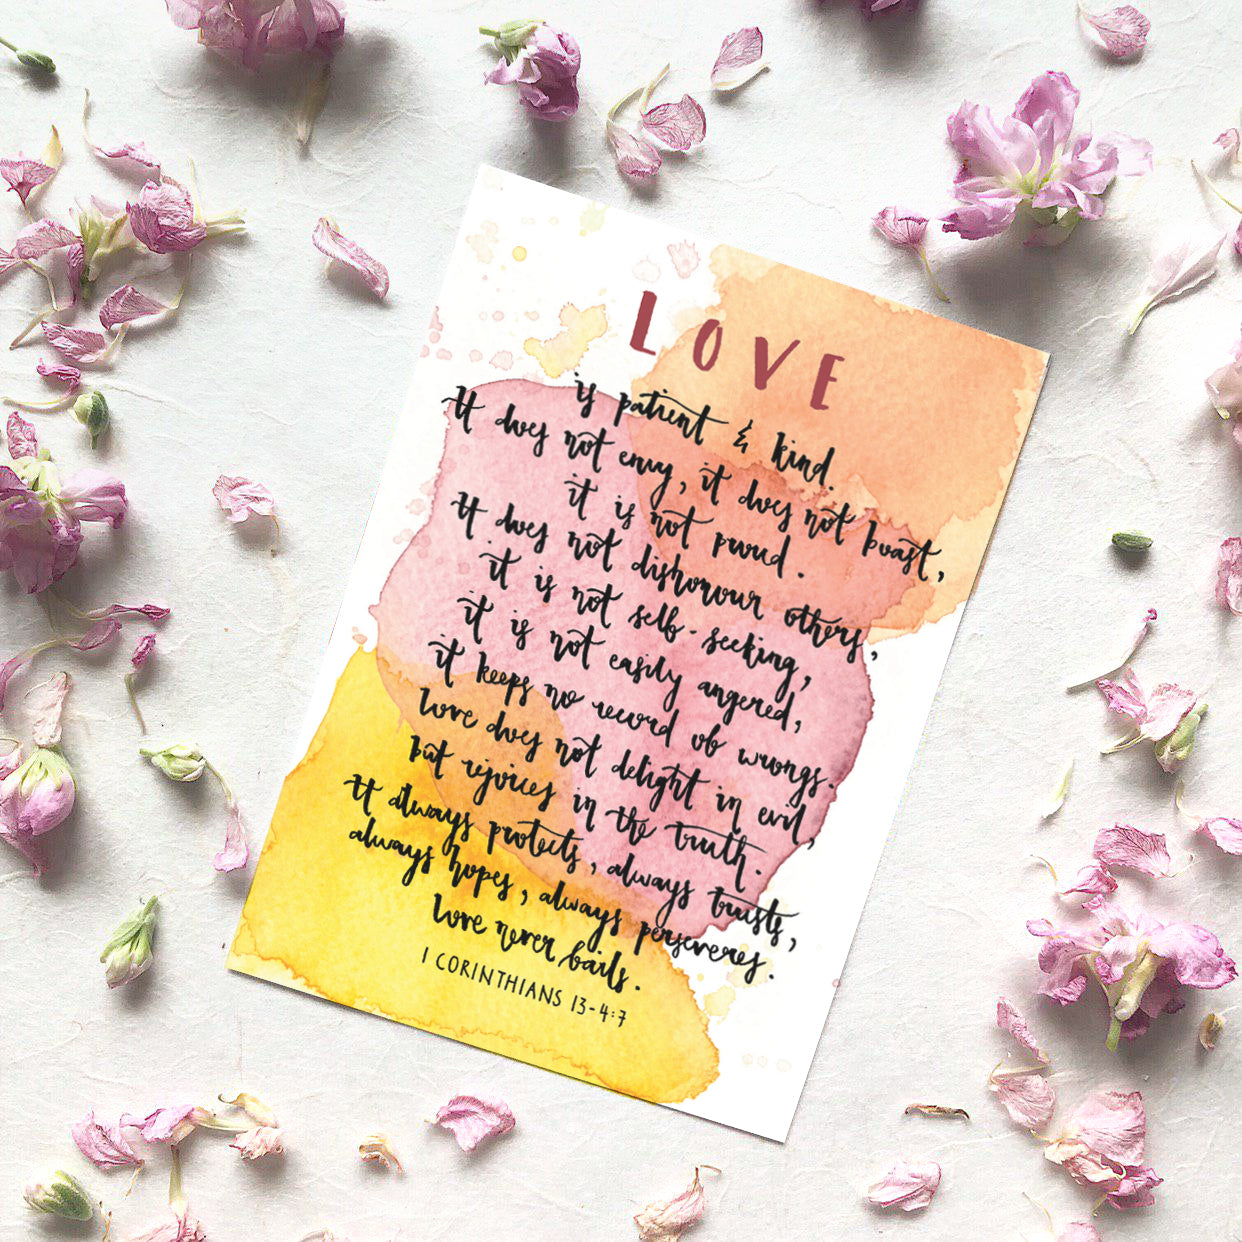 LOVE
is patient & kind.
It does not envy, it does not boast,
it is not proud.
It does not dishonour others,
it is not self-seeking,
it is not easily angered,
it keeps no record of wrongs.
Love does not delight in evil,
but rejoices in the truth.
It always protects, always trusts,
always hopes, always perseveres.
Love never fails.
1 CORINTHIANS 13-4:7